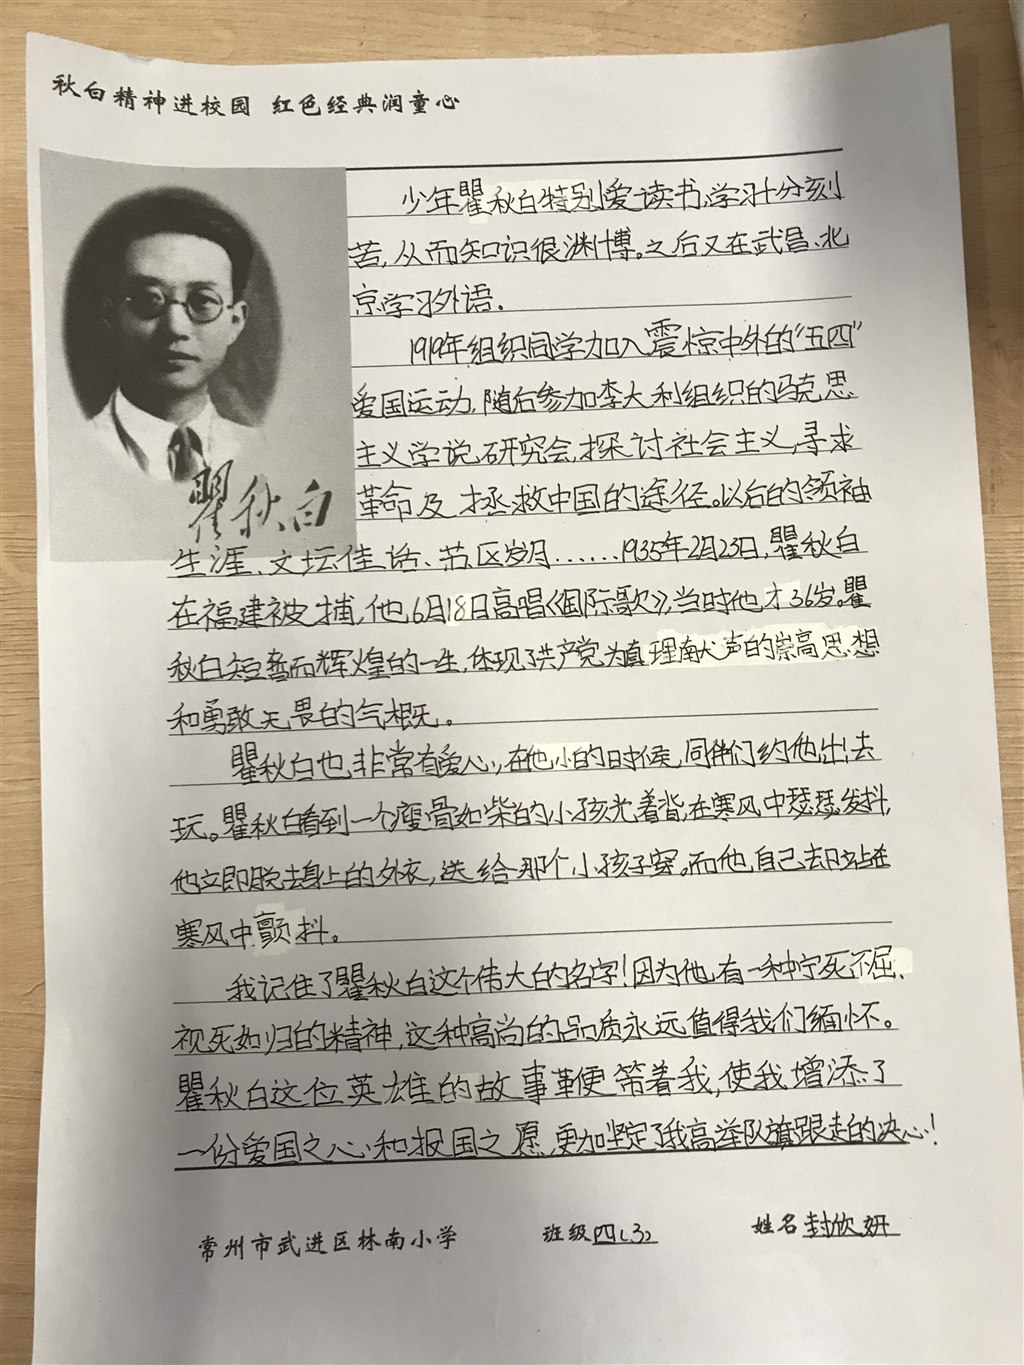 秋白精神进校园 红色经典润童心
少年瞿秋白特别爱读书、学习十分刻
苦,从而知识很渊博。之后又在武昌、北
京学习外语.
1919年组织同学加入震惊中外的"五四"
爱国运动,随后参加李大利组织的马克思
主义学说研究会,探讨社会主义,寻求
革命及拯救中国的途径。以后的领袖
瞿秋白
生涯、文坛佳话、苏区岁月……1935年2月23日,瞿秋白
在福建被捕,他6月18日高唱《国际歌》,当时他才36岁。瞿
秋白短暂而辉煌的一生,体现了共产党为真理献声的崇高思想
和勇敢无畏的气概。
瞿秋白也非常有爱心,在他小的时候,同伴们约他出去
玩。瞿秋白看到一个瘦骨如柴的小孩光着背,在寒风中瑟瑟发抖,
他立即脱去身上的外衣,送给那个小孩子穿。而他自己却站在
寒风中颤抖。
我记住了瞿秋白这个伟大的名字!因为他有一种宁死不屈、
视死如归的精神,这种高尚的品质永远值得我们缅怀。
瞿秋白这位英雄的故事鞭策着我,使我增添了
一份爱国之心和报国之愿,更加坚定了我高举队旗跟走的决心!
常州市武进区林南小学 班级四(3) 姓名封欣妍